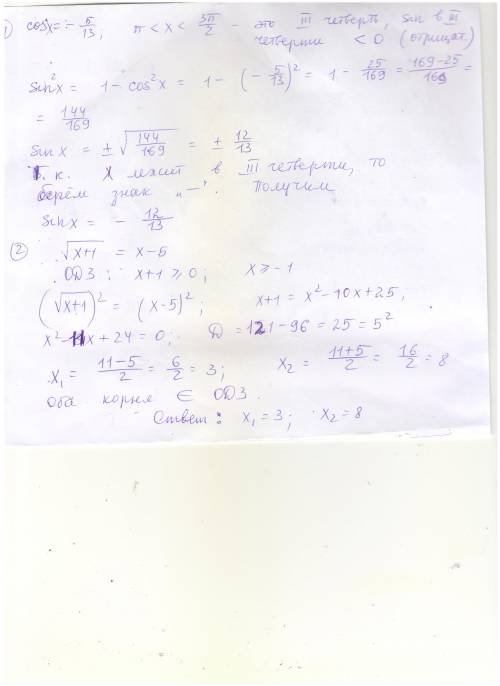 1) cos x = - 5/13; π < x < 3π/2 - это III четверть, sin в III
четверти < 0 (отрицат.)
sin²x = 1 - cos²x = 1 - (- 5/13)² = 1 - 25/169 = (169-25)/169 =
= 144/169
sin x = ± √(144/169) = ± 12/13
Т. к. X лежит в III четверти, то
берём знак „—“. Получим
sin x = - 12/13
② √(x+1) = x-5
ОДЗ: x+1 ≥ 0; x ≥ -1
(√(x+1))² = (x-5)²; x+1 = x²-10x+25;
x²-11x+24=0; D = 121-96 = 25 = 5²
x₁ = (11-5)/2 = 6/2 = 3; x₂ = (11+5)/2 = 16/2 = 8
Оба корня ∈ ОДЗ.
Ответ: x₁=3; x₂=8